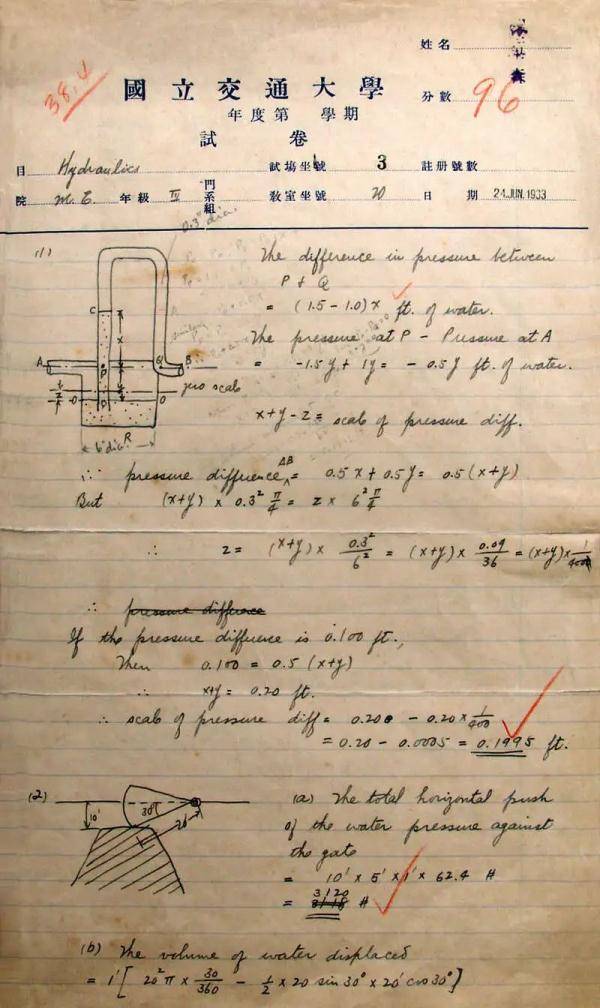 姓名
國立交通大學
38.4
分數 96
年度第 學期
試 卷
目 Hydraulics 試場坐號 3 註册號數
院 M.E. 年級 IV 門系組 教室坐號 20 日期 24 JUN. 1933
0.3" dia.
(1)
The difference in pressure between
P + Q
= (1.5 - 1.0) x ft. of water.
The pressure at P - Pressure at A
= -1.5y + 1y = - 0.5y ft. of water.
C
x
A
P
Q
B
zero scale
y
z
O
O
D
R
6" dia.
x+y-z = scale of pressure diff.
∴ pressure difference AB = 0.5x + 0.5y = 0.5 (x+y)
But (x+y) × 0.3² π/4 = z × 6² π/4
∴ z = (x+y) × 0.3²/6² = (x+y) × 0.09/36 = (x+y) × 1/400
∴ pressure difference
If the pressure difference is 0.100 ft.,
Then 0.100 = 0.5 (x+y)
∴ x+y = 0.20 ft.
∴ scale of pressure diff = 0.200 - 0.20 × 1/400
= 0.20 - 0.0005 = 0.1995 ft.
(2)
10'
30°
20'
(a) The total horizontal push
of the water pressure against
the gate
= 10' × 5' × 1' × 62.4 #
= 3120 #
(b) The volume of water displaced
= 1' [ 20² π × 30/360 - 1/2 × 20 sin 30° × 20' cos 30° ]